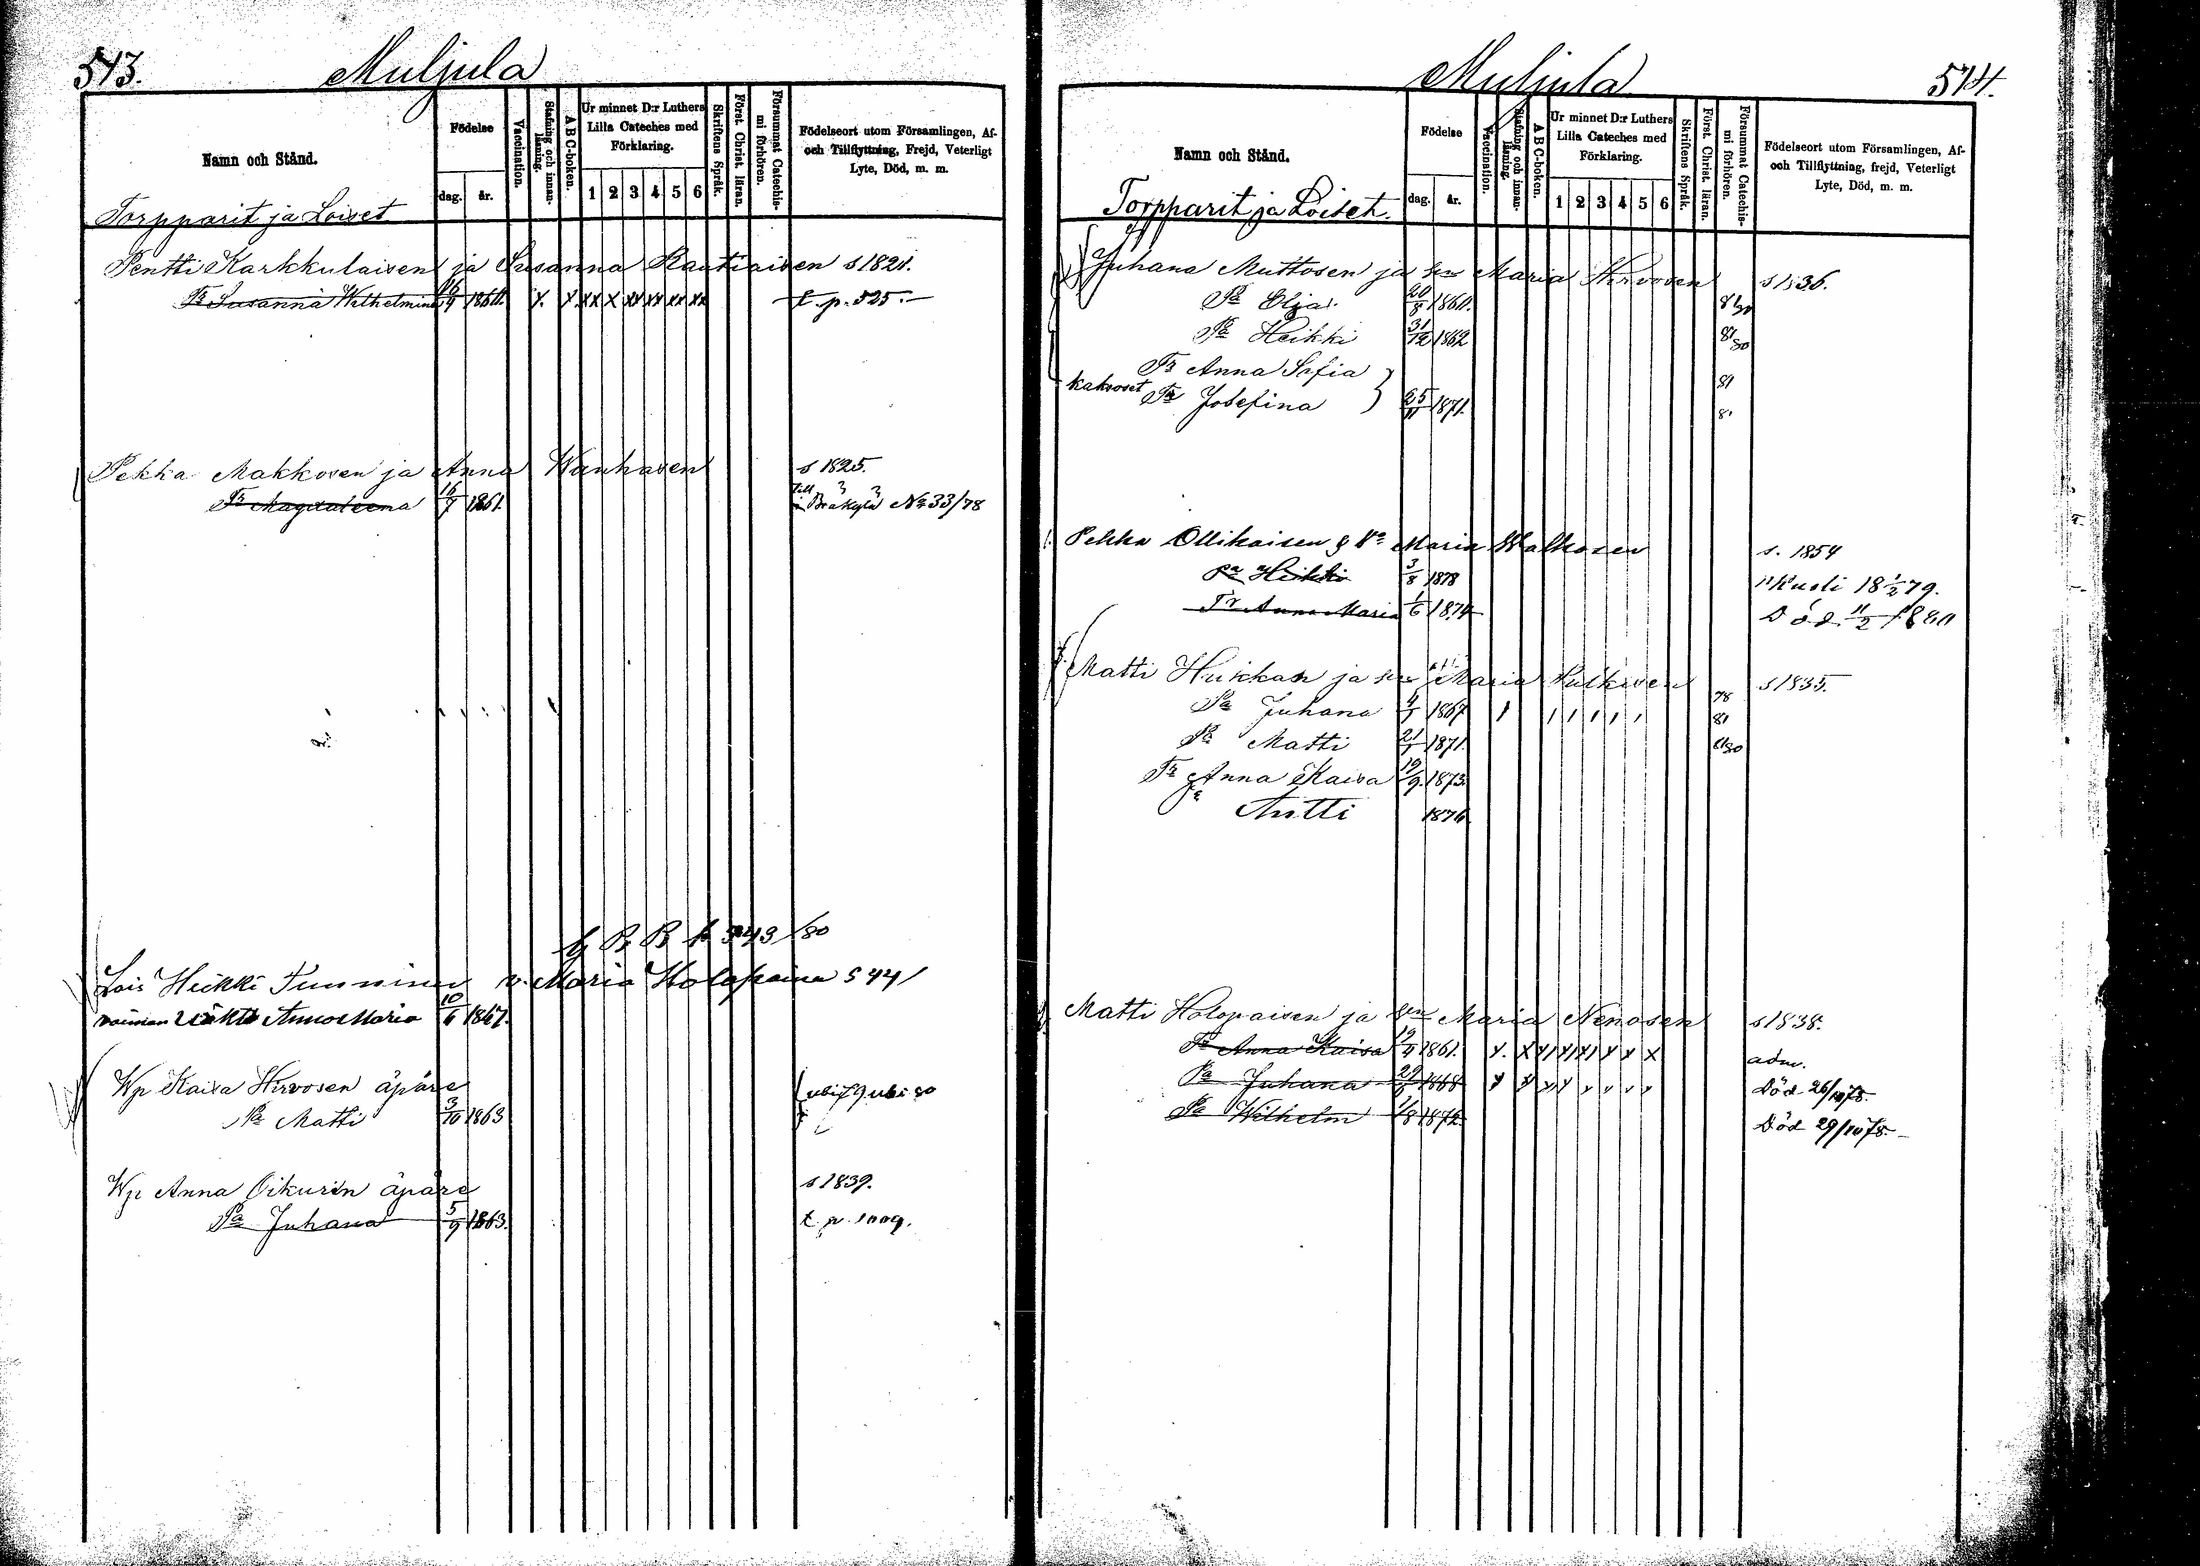 543.
Muljula
Namn och Stånd.
Födelse
dag.
år.
Vaccination.
Stafning och innanläsning.
A B C-boken.
Ur minnet D:r Luthers Lilla Cateches med Förklaring.
1 2 3 4 5 6
Skriftens Språk.
Först. Christ. läran.
Försummat Catechismi förhören.
Födelseort utom Församlingen, Af- och Tillflyttning, Frejd, Veterligt Lyte, Död, m. m.
Torpparit ja Loiset
Pentti Karkkulaisen ja Susanna Rautiaisen s 1821.
Tr Susanna Wilhelmina 1864 x. x xx x xx xx xx xx t. p. 525.
Pekka Makkosen ja Anna Wanhasen s 1825.
Tr Magdaleena 16/7 1861. till Brakylä No 33/78
B B p 343/80
Lois Heikki Tumminen v. Maria Holopainen s 44
vaiman Anna Maria 10/6 1867.
Wp Kaisa Hirvosen äpäre ubi 79 ubi 80
Pa Matti 3/10 1863
Wp Anna Oikurin äpäre s 1839.
Pa Juhana 5/9 1863. t. p. 1009.
544.
Muljula
Namn och Stånd.
Födelse
dag.
år.
Vaccination.
Stafning och innanläsning.
A B C-boken.
Ur minnet D:r Luthers Lilla Cateches med Förklaring.
1 2 3 4 5 6
Skriftens Språk.
Först. Christ. läran.
Försummat Catechismi förhören.
Födelseort utom Församlingen, Af- och Tillflyttning, frejd, Veterligt Lyte, Död, m. m.
Torpparit ja Loiset.
Juhana Muttosen ja sen Maria Hirvosen s 1836.
Pa Elja 20/8 1860. 81 80
Pa Heikki 31/12 1862 81 80
Tr Anna Sofia 81
kaksoset Tr Josefina 25/11 1871. 81
Pekka Ollikaisen & Va Maria Walkosen s. 1854
Pa Heikki 3/8 1878 Kuoli 18 1/2 79.
Tr Anna Maria 1/6 1874 Död 11/2 1880
Matti Hukkan ja sen Maria Pulkisen s 1835.
78
Pa Juhana 4/1 1867 81
Pa Matti 21/1 1871. 81 80
Tr Anna Kaisa 19/9 1873.
Antti 1876
Matti Holopaisen ja sen Maria Nenosen s 1838.
Tr Anna Kaisa 19/4 1861. adm.
Pa Juhana 1868 Död 26/10 78.
Pa Wilhelm 1/8 1872 Död 29/10 78.